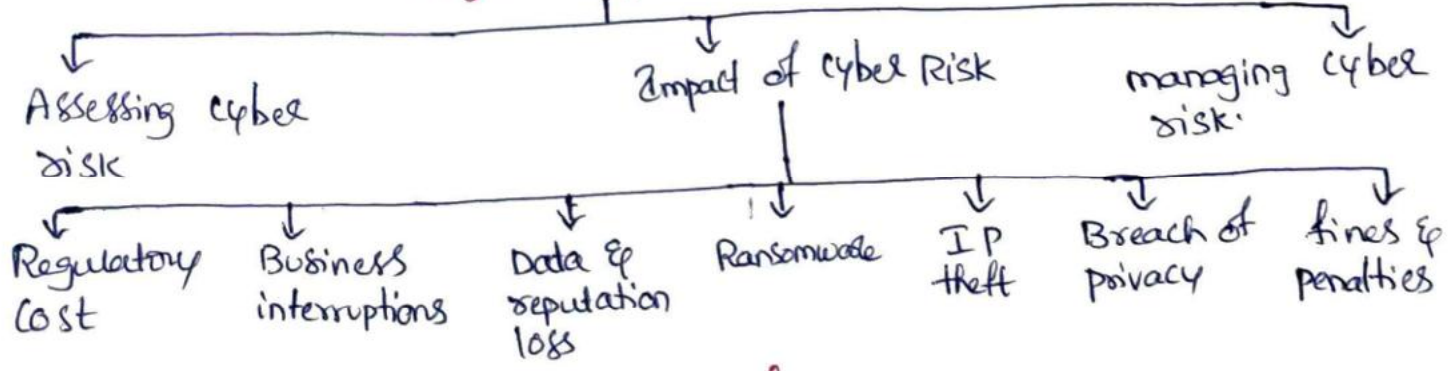 Assessing cyber
risk
Impact of cyber Risk
managing cyber
risk.
Regulatory
Cost
Business
interruptions
Data &
reputation
loss
Ransomware
IP
theft
Breach of
privacy
fines &
penalties